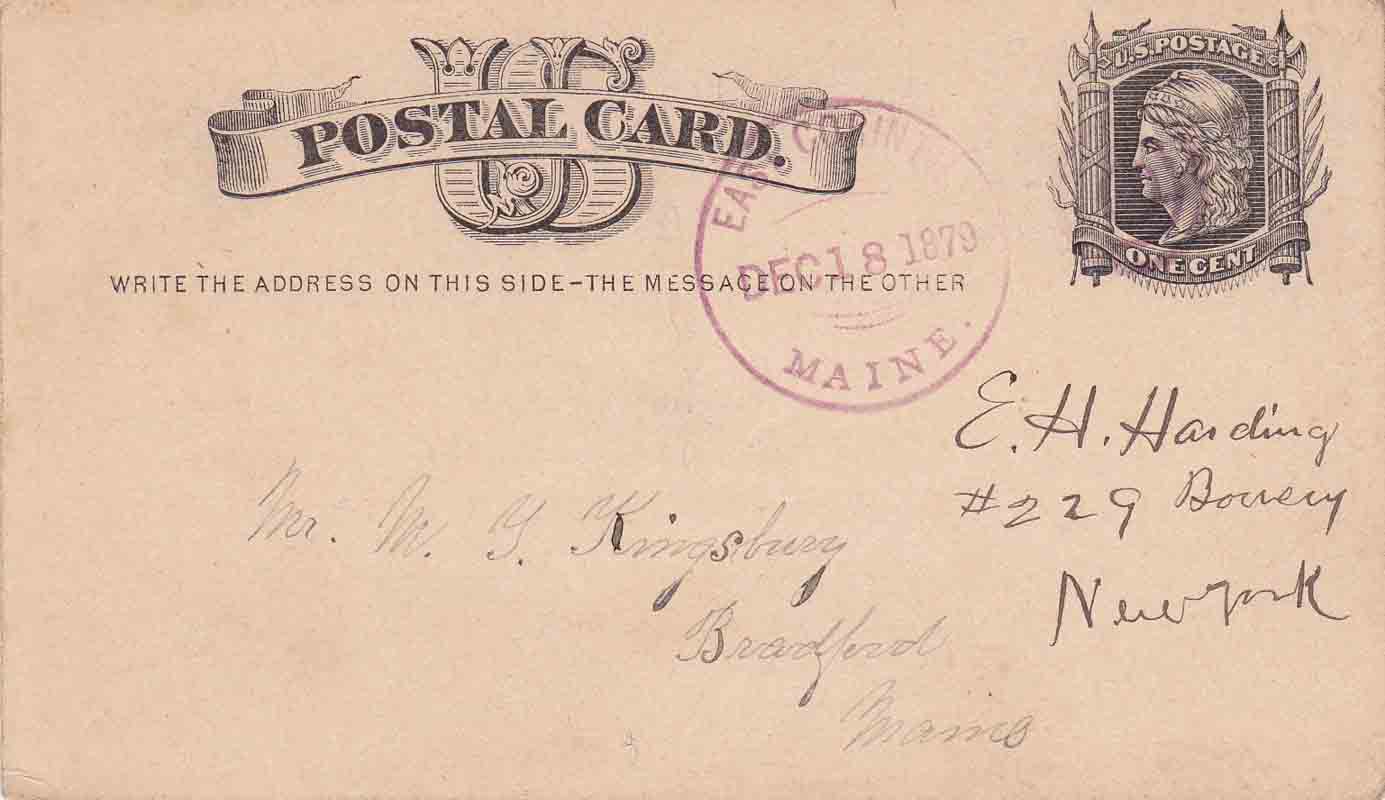 US
POSTAL CARD.
U.S. POSTAGE
ONE CENT
WRITE THE ADDRESS ON THIS SIDE – THE MESSAGE ON THE OTHER
EAST CORINTH
DEC 18 1879
MAINE.
E. H. Harding
#229 Bowery
New York
Mr. M. G. Kingsbury
Bradford
Maine